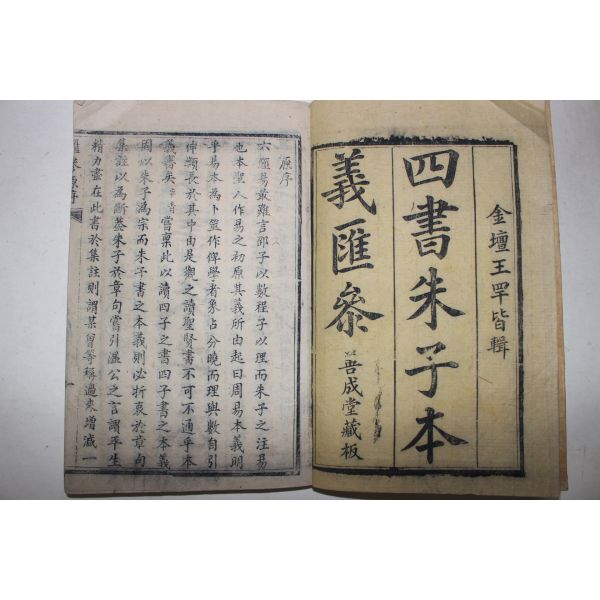 金壇王罕皆輯
四書朱子本
義匯參
吾成堂藏板
原序
六經易最難言邵子以數程子以理而朱子之注易
也本聖人作易之初原其義所由起曰周易本義明
乎易本為卜筮作俾學者象占分曉而理與數自引
伸觸長於其中由是觀之讀聖賢書不可不通乎本
義書矣 嘗稟此以讀四子之書四子書之本義
固以朱子為宗而朱子書之本義則必折衷於章句
集註以為斷蓋朱子於章句嘗引溫公之言謂平生
精力盡在此書於集註則謂某曾等稱過來增減一
匯參原序